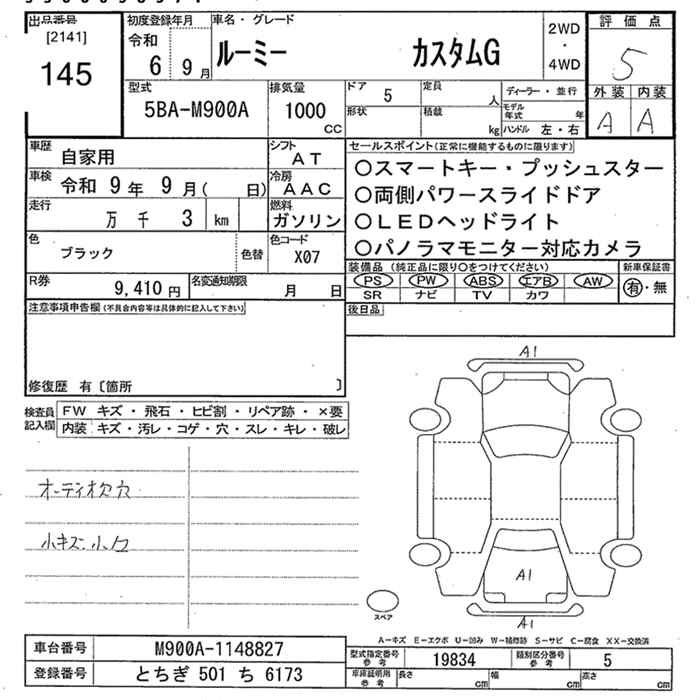 出品番号
[2141]
145
初度登録年月
令和
6 9月
車名・グレード
ルーミー カスタムG
2WD
・
4WD
評価点
5
外装 内装
A A
型式
5BA-M900A
排気量
1000
CC
ドア
5
定員
人
形状
積載
kg
ディーラー・並行
モデル年式
年
ハンドル 左・右
車歴
自家用
シフト
AT
車検
令和 9年 9月( 日)
冷房
AAC
走行
万 千 3 km
燃料
ガソリン
色
ブラック
色替
色コード
X07
R券
9,410円
名変通知期限
月 日
セールスポイント(正常に機能するものに限ります)
○スマートキー・プッシュスター
○両側パワースライドドア
○LEDヘッドライト
○パノラマモニター対応カメラ
装備品(純正品に限り○をつけてください)
PS PW ABS エアB AW
SR ナビ TV カワ
新車保証書
有・無
後日品
注意事項申告欄(不具合内容等は具体的に記入して下さい)
修復歴 有〔箇所 〕
検査員記入欄
FW キズ・飛石・ヒビ割・リペア跡・×要
内装 キズ・汚レ・コゲ・穴・スレ・キレ・破レ
オーディオ欠穴
小キズ・小凹
A1
A1
A1
スペア
A-キズ E-エクボ U-凹み W-補修跡 S-サビ C-腐食 XX-交換済
車台番号
M900A-1148827
登録番号
とちぎ 501 ち 6173
型式指定番号
参考
19834
類別区分番号
参考
5
車庫証明用
参考
長さ
cm
幅
cm
高さ
cm